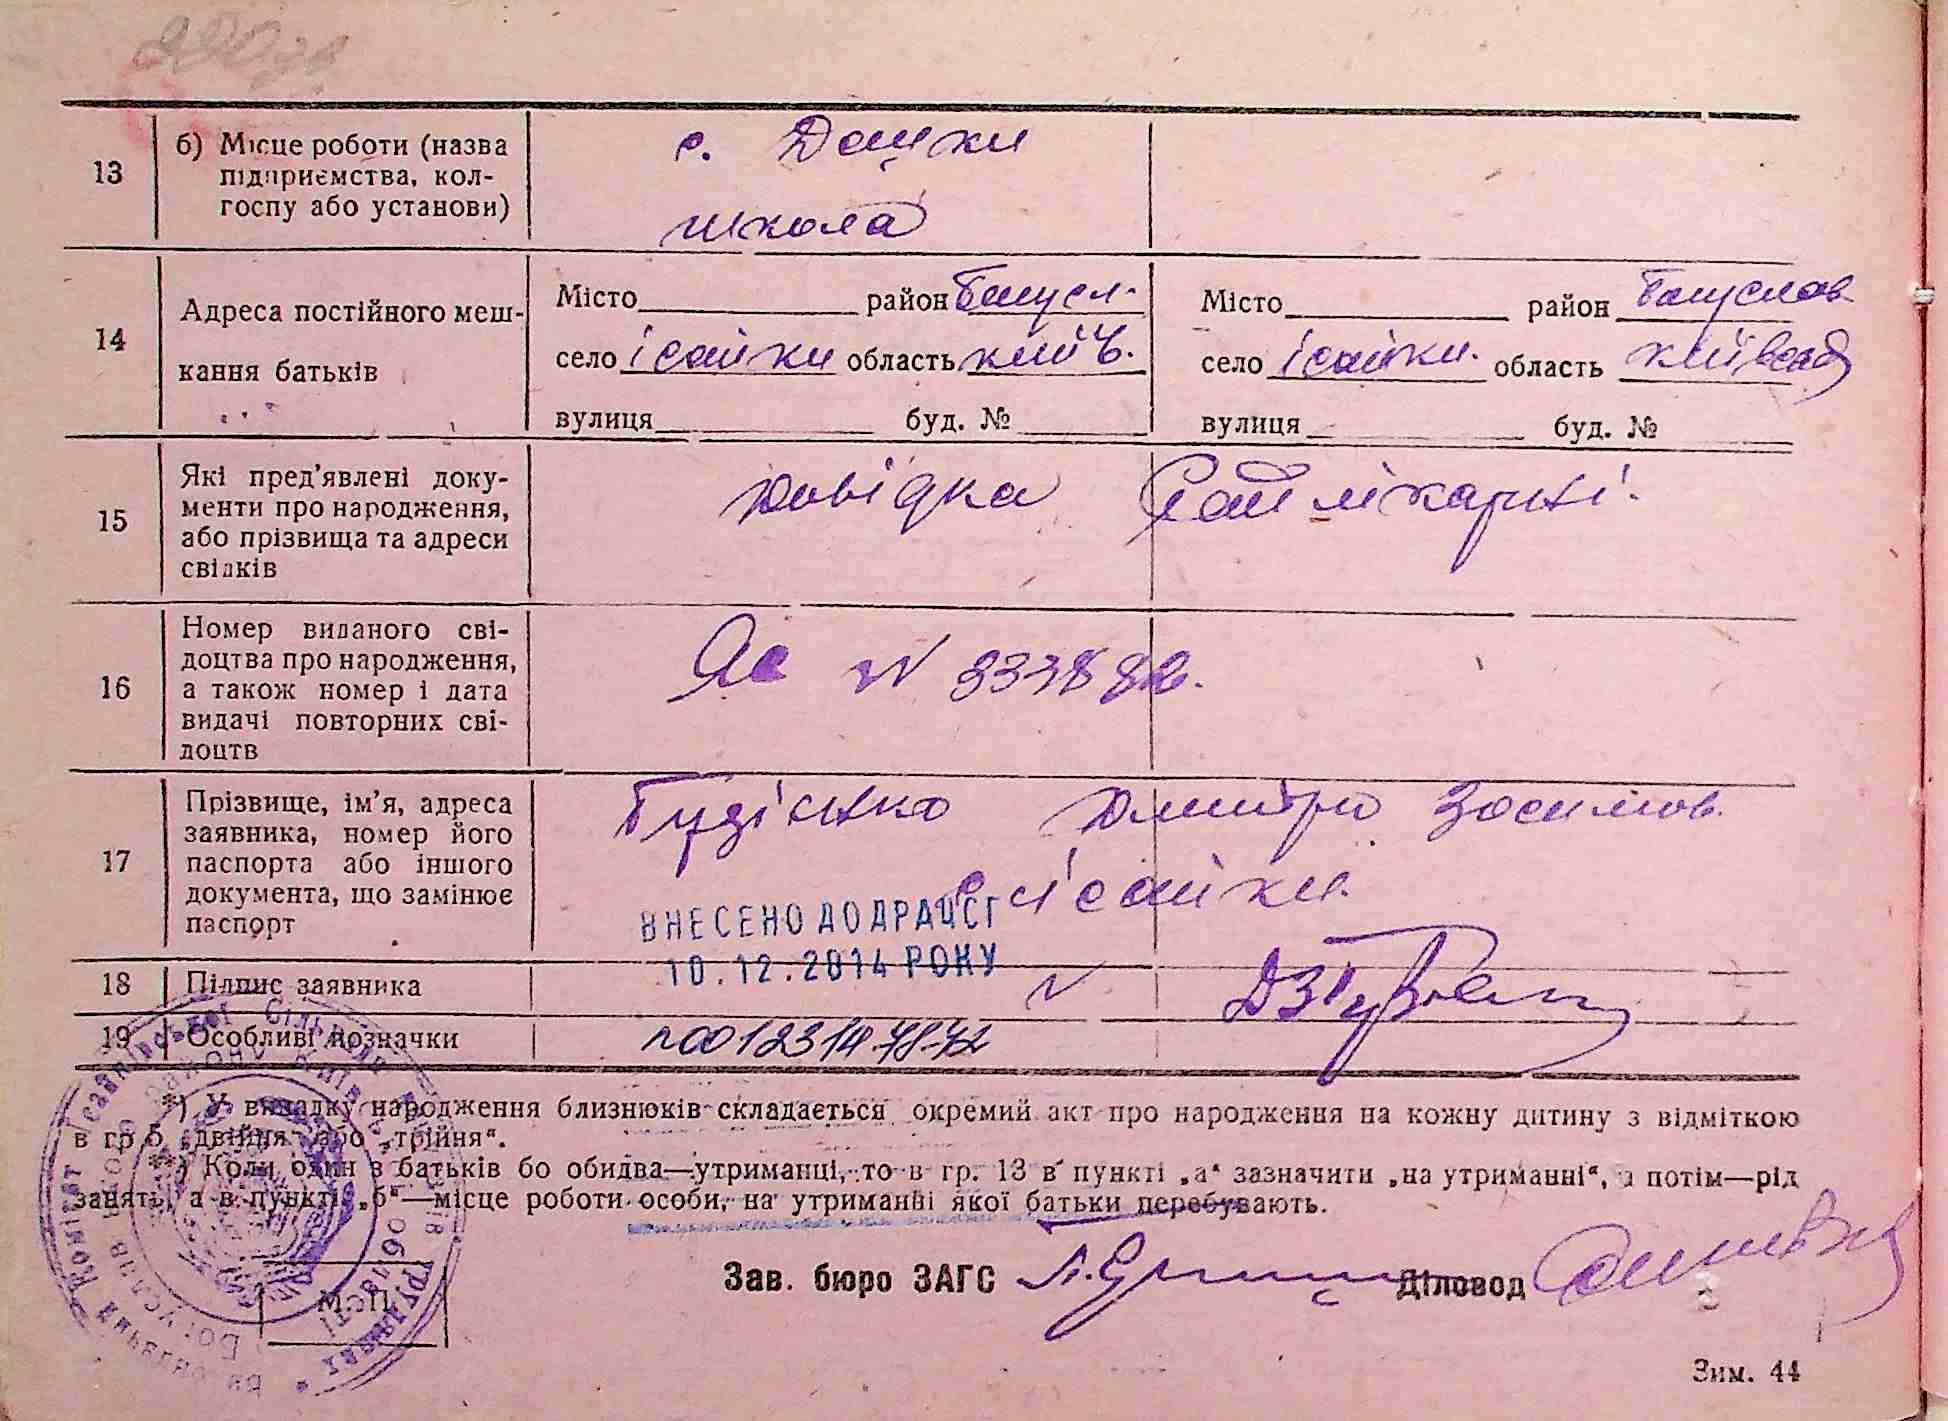 13
б) Місце роботи (назва
підприємства, кол-
госпу або установи)
с. Дашки
школа
14
Адреса постійного меш-
кання батьків
Місто район Богусл.
село Ісайки область Київ.
вулиця буд. №
Місто район Богуслав
село Ісайки. область Київська
вулиця буд. №
15
Які пред'явлені доку-
менти про народження,
або прізвища та адреси
свідків
Довідка лікарні.
16
Номер виданого сві-
доцтва про народження,
а також номер і дата
видачі повторних сві-
доцтв
N
17
Прізвище, ім'я, адреса
заявника, номер його
паспорта або іншого
документа, що замінює
паспорт
Дмитро Зосимов.
с. Ісайки.
ВНЕСЕНО ДО ДРАЦСГ
10.12.2014 РОКУ
18
Підпис заявника
19
Особливі позначки
*) У випадку народження близнюків складається окремий акт про народження на кожну дитину з відміткою
в гр. 5 „двійня" або „трійня".
**) Коли один з батьків бо обидва—утриманці, то в гр. 13 в пункті „а" зазначити „на утриманні", а потім—рід
занять, а в пункті „б"—місце роботи особи, на утриманні якої батьки перебувають.
Зав. бюро ЗАГС
Діловод
М. П.
Зим. 44